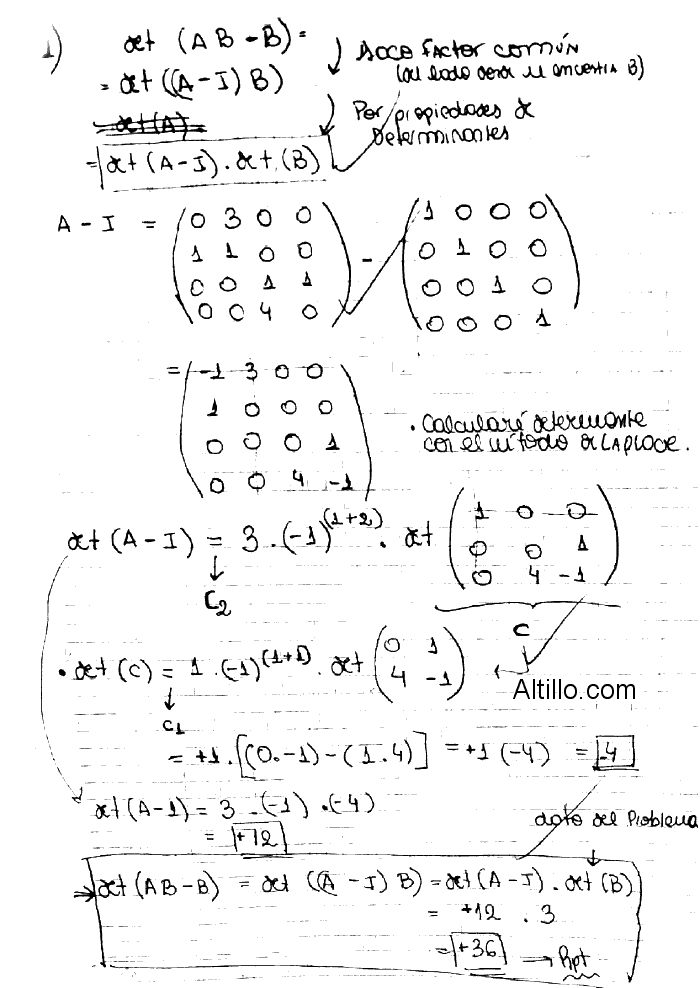 1) det (AB-B) =
= det ((A-I) B)
Saco factor común
(al lado
B)
det(A) =
Por propiedades de
Determinantes
= det (A-I) . det (B)
A - I = ( 0 3 0 0 ) - ( 1 0 0 0 )
( 1 1 0 0 ) ( 0 1 0 0 )
( 0 0 1 1 ) ( 0 0 1 0 )
( 0 0 4 0 ) ( 0 0 0 1 )
= ( -1 3 0 0 )
( 1 0 0 0 )
( 0 0 0 1 )
( 0 0 4 -1 )
. Calcularé determonte
con el método de LAPLACE.
det (A - I) = 3 . (-1)^(1+2) . det ( 1 0 0 )
( 0 0 1 )
( 0 4 -1 )
C2
C
. det (C) = 1 . (-1)^(1+1) . det ( 0 1 )
( 4 -1 )
C1
Altillo.com
= +1 . [(0.-1) - (1.4)] = +1 (-4) = -4
det (A-1) = 3 . (-1) . (-4)
= +12
dato del Problema
det (AB-B) = det ((A - I) B) = det (A-I) . det (B)
= +12 . 3
= +36 → Rpt